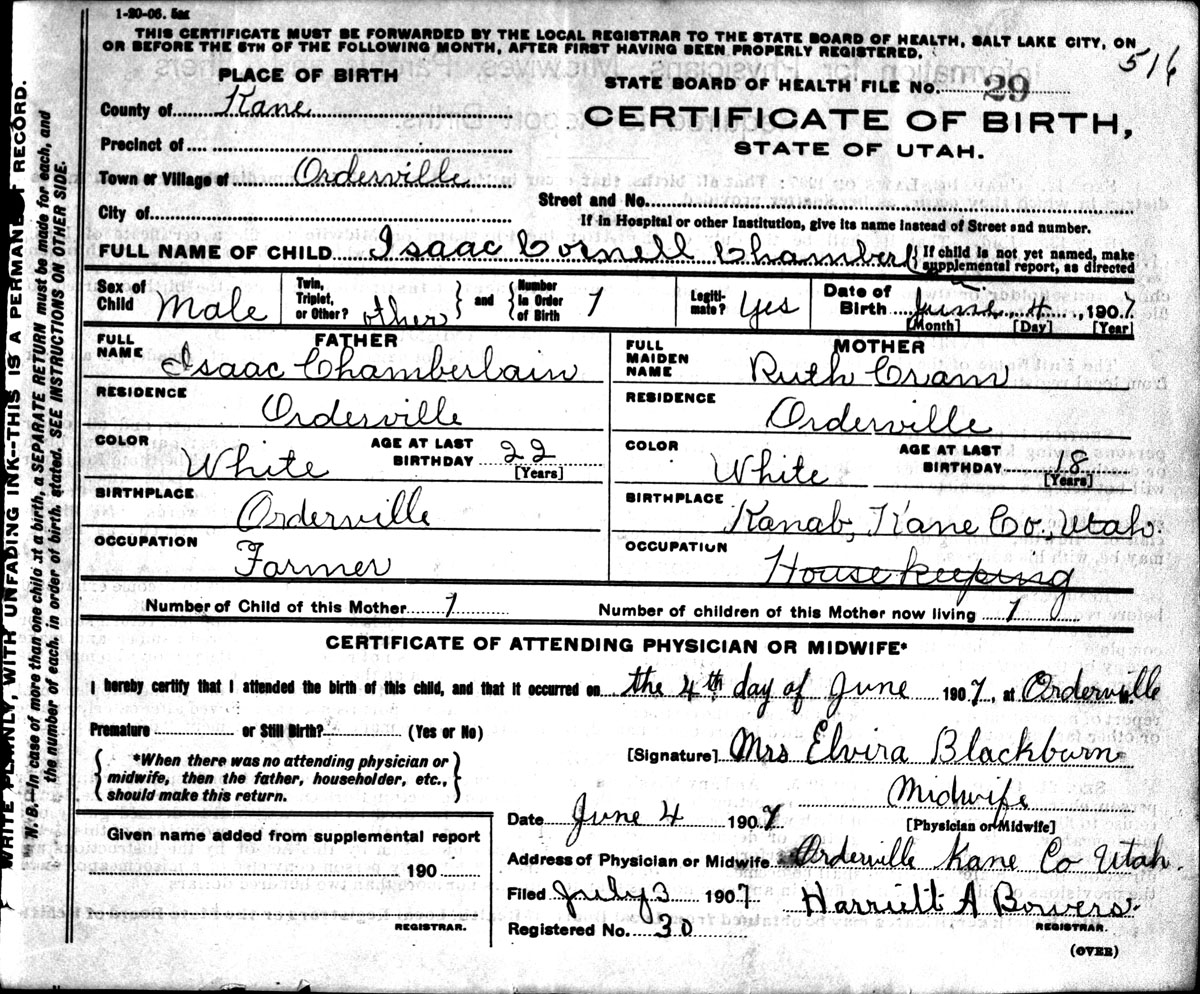 1-20-06. 5M
THIS CERTIFICATE MUST BE FORWARDED BY THE LOCAL REGISTRAR TO THE STATE BOARD OF HEALTH, SALT LAKE CITY, ON
OR BEFORE THE 5TH OF THE FOLLOWING MONTH, AFTER FIRST HAVING BEEN PROPERLY REGISTERED.
516
PLACE OF BIRTH
County of Kane
Precinct of
Town or Village of Orderville
City of
STATE BOARD OF HEALTH FILE NO. 29
CERTIFICATE OF BIRTH,
STATE OF UTAH.
Street and No.
If in Hospital or other Institution, give its name instead of Street and number.
FULL NAME OF CHILD Isaac Cornell Chamberl { If child is not yet named, make supplemental report, as directed
Sex of Child Male
Twin, Triplet, or Other? other } and { Number in Order of Birth 1
Legitimate? Yes
Date of Birth June 4, 1907
[Month] [Day] [Year]
FATHER
FULL NAME Isaac Chamberlain
RESIDENCE Orderville
COLOR White
AGE AT LAST BIRTHDAY 22 [Years]
BIRTHPLACE Orderville
OCCUPATION Farmer
MOTHER
FULL MAIDEN NAME Ruth Cram
RESIDENCE Orderville
COLOR White
AGE AT LAST BIRTHDAY 18 [Years]
BIRTHPLACE Kanab, Kane Co., Utah.
OCCUPATION Housekeeping
Number of Child of this Mother 1 Number of children of this Mother now living 1
CERTIFICATE OF ATTENDING PHYSICIAN OR MIDWIFE*
I hereby certify that I attended the birth of this child, and that it occurred on the 4th day of June 1907, at Orderville
Premature or Still Birth? (Yes or No)
{ *When there was no attending physician or
midwife, then the father, householder, etc.,
should make this return. }
[Signature] Mrs Elvira Blackburn
Midwife
[Physician or Midwife]
Date June 4 1907
Address of Physician or Midwife Orderville Kane Co Utah.
Filed July 3 1907 Harriett A Bowers.
REGISTRAR.
Registered No. 30
(OVER)
Given name added from supplemental report
190
REGISTRAR.
WRITE PLAINLY, WITH UNFADING INK--THIS IS A PERMANENT RECORD.
N. B.--In case of more than one child at a birth, a SEPARATE RETURN must be made for each, and
the number of each, in order of birth, stated. SEE INSTRUCTIONS ON OTHER SIDE.